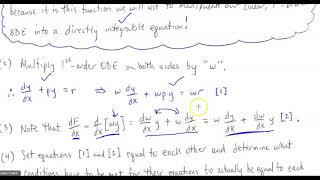 because it is this function we will use to manipulate our linear, 1st-order
ODE into a directly integrable equation!
(2) Multiply 1st-order ODE on both sides by "w".
∴ dy/dx + py = r ⇒ w dy/dx + wpy = wr [1]
(3) Note that dF/dx = d/dx [wy] = dw/dx y + w dy/dx = w dy/dx + dw/dx y [2].
(4) Set equations [1] and [2] equal to each other and determine what
conditions have to be met for these equations to actually be equal to each